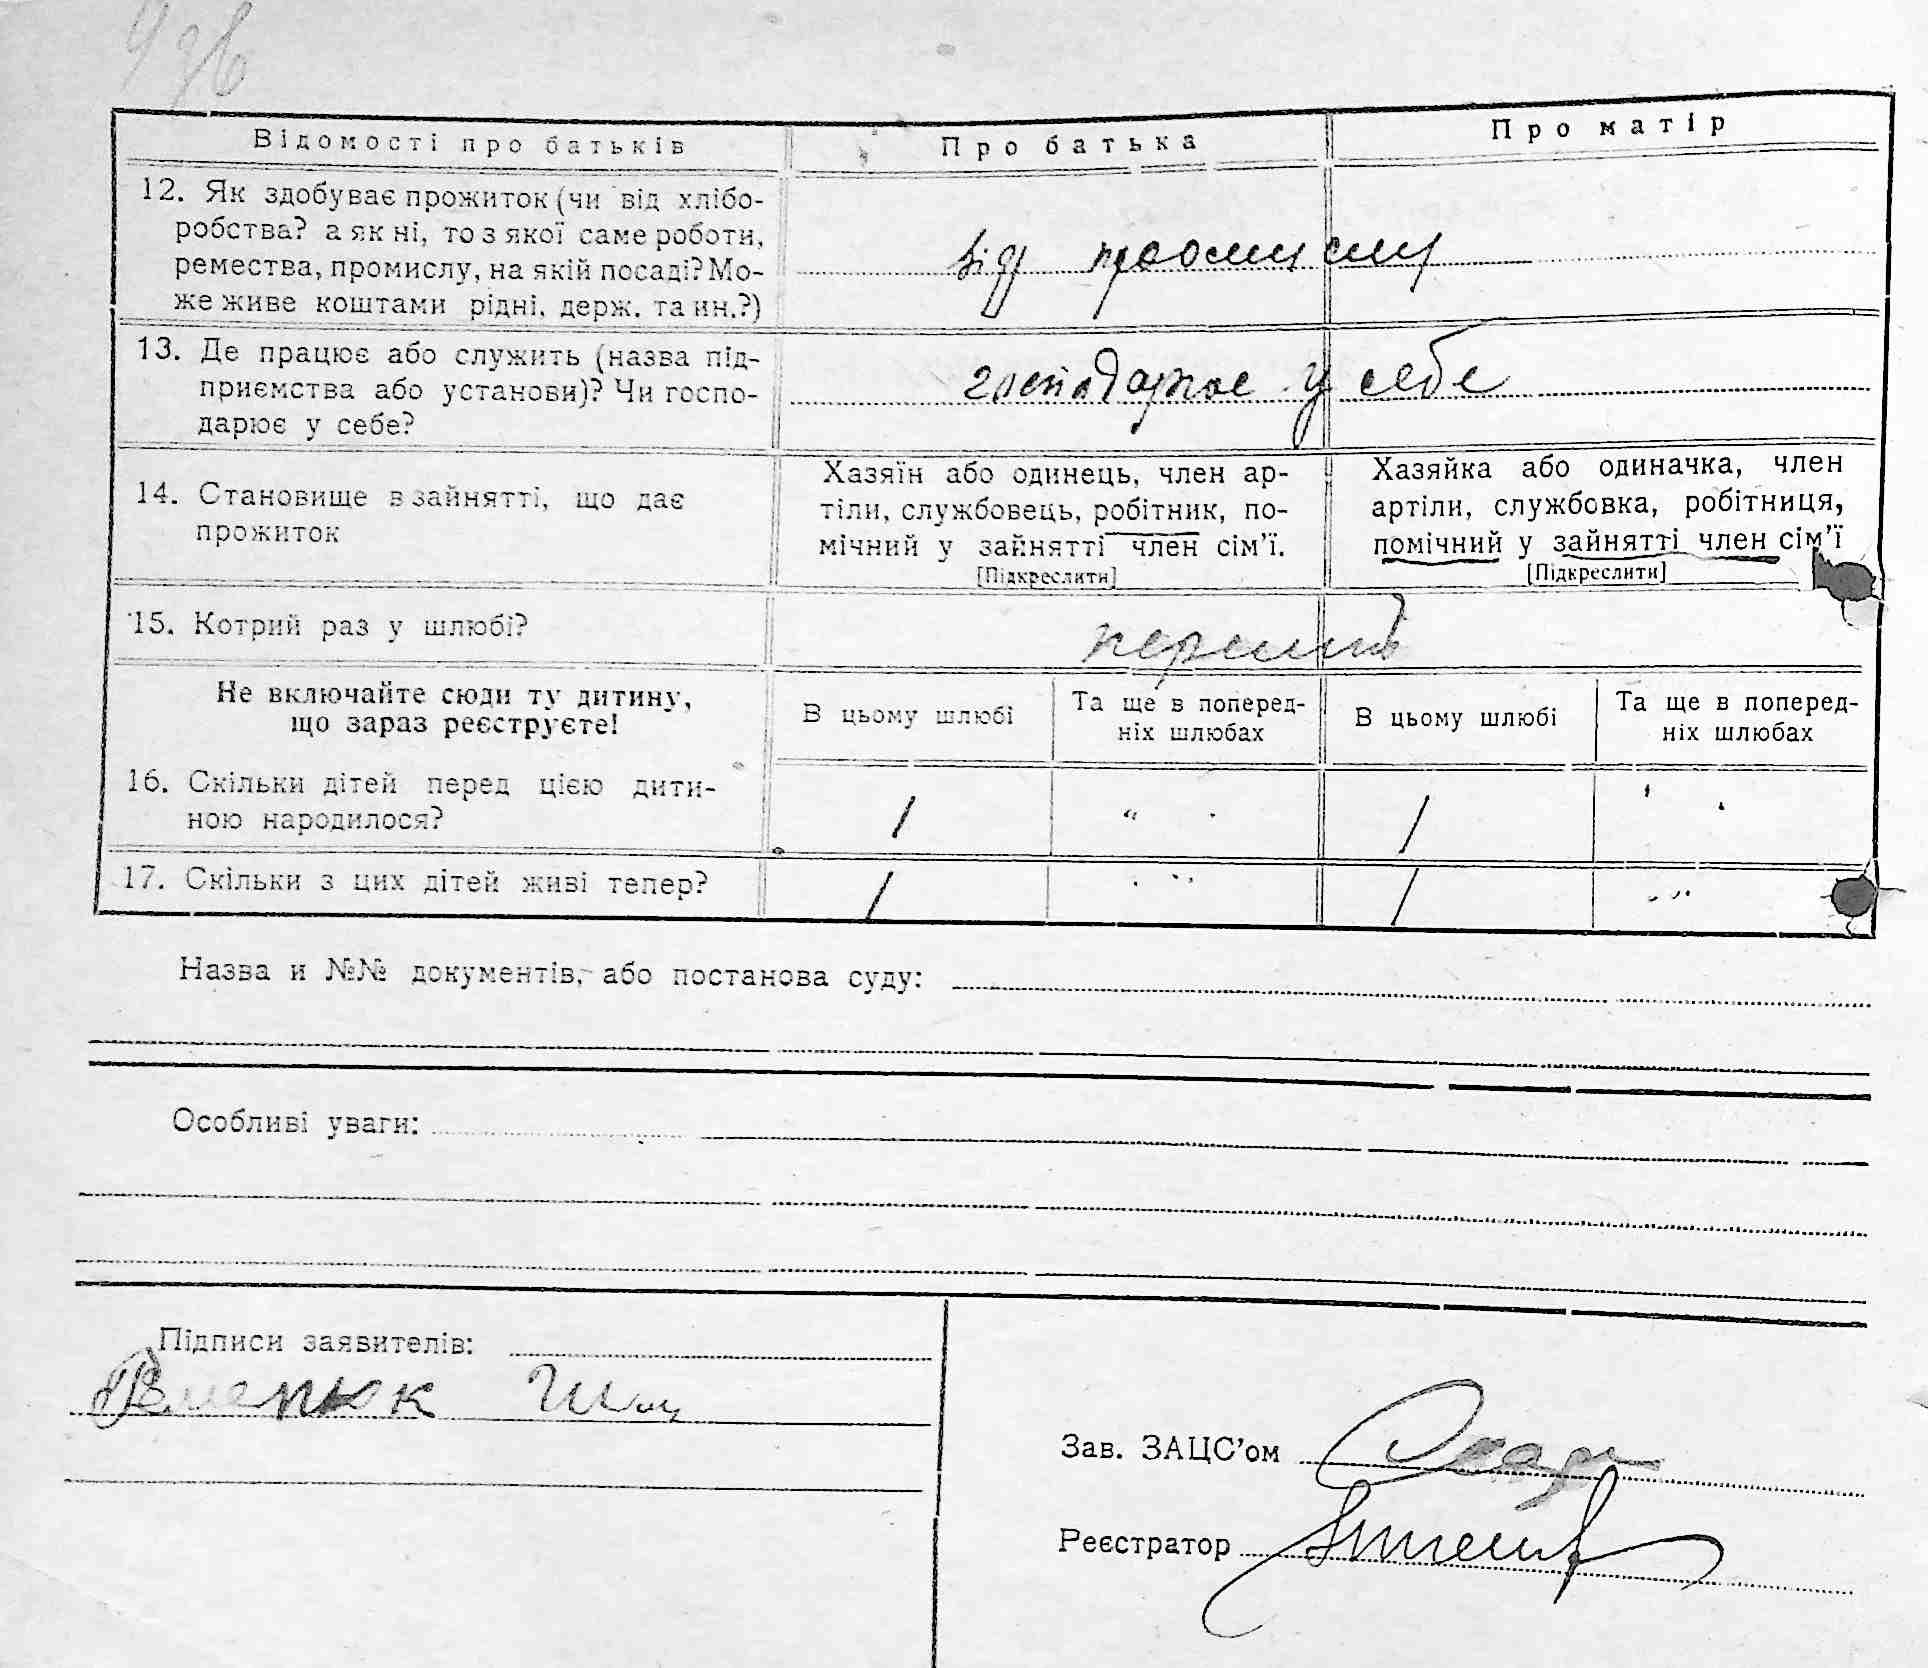 Відомості про батьків
Про батька
Про матір
12. Як здобуває прожиток (чи від хлібо-
робства? а як ні, то з якої саме роботи,
ремества, промислу, на якій посаді? Мо-
же живе коштами рідні, держ. та ин.?)
від промислу
13. Де працює або служить (назва під-
приємства або установи)? Чи госпо-
дарює у себе?
господарює у себе
14. Становище в зайнятті, що дає
прожиток
Хазяїн або одинець, член ар-
тіли, службовець, робітник, по-
мічний у зайнятті член сім’ї.
[Підкреслити]
Хазяйка або одиначка, член
артіли, службовка, робітниця,
помічний у зайнятті член сім’ї
[Підкреслити]
15. Котрий раз у шлюбі?
перший
Не включайте сюди ту дитину,
що зараз реєструєте!
В цьому шлюбі
Та ще в поперед-
ніх шлюбах
В цьому шлюбі
Та ще в поперед-
ніх шлюбах
16. Скільки дітей перед цією дити-
ною народилося?
1 " 1 "
17. Скільки з цих дітей живі тепер?
1 " 1 "
Назва и №№ документів, або постанова суду:
Особливі уваги:
Підписи заявителів:
Зав. ЗАЦС’ом
Реєстратор